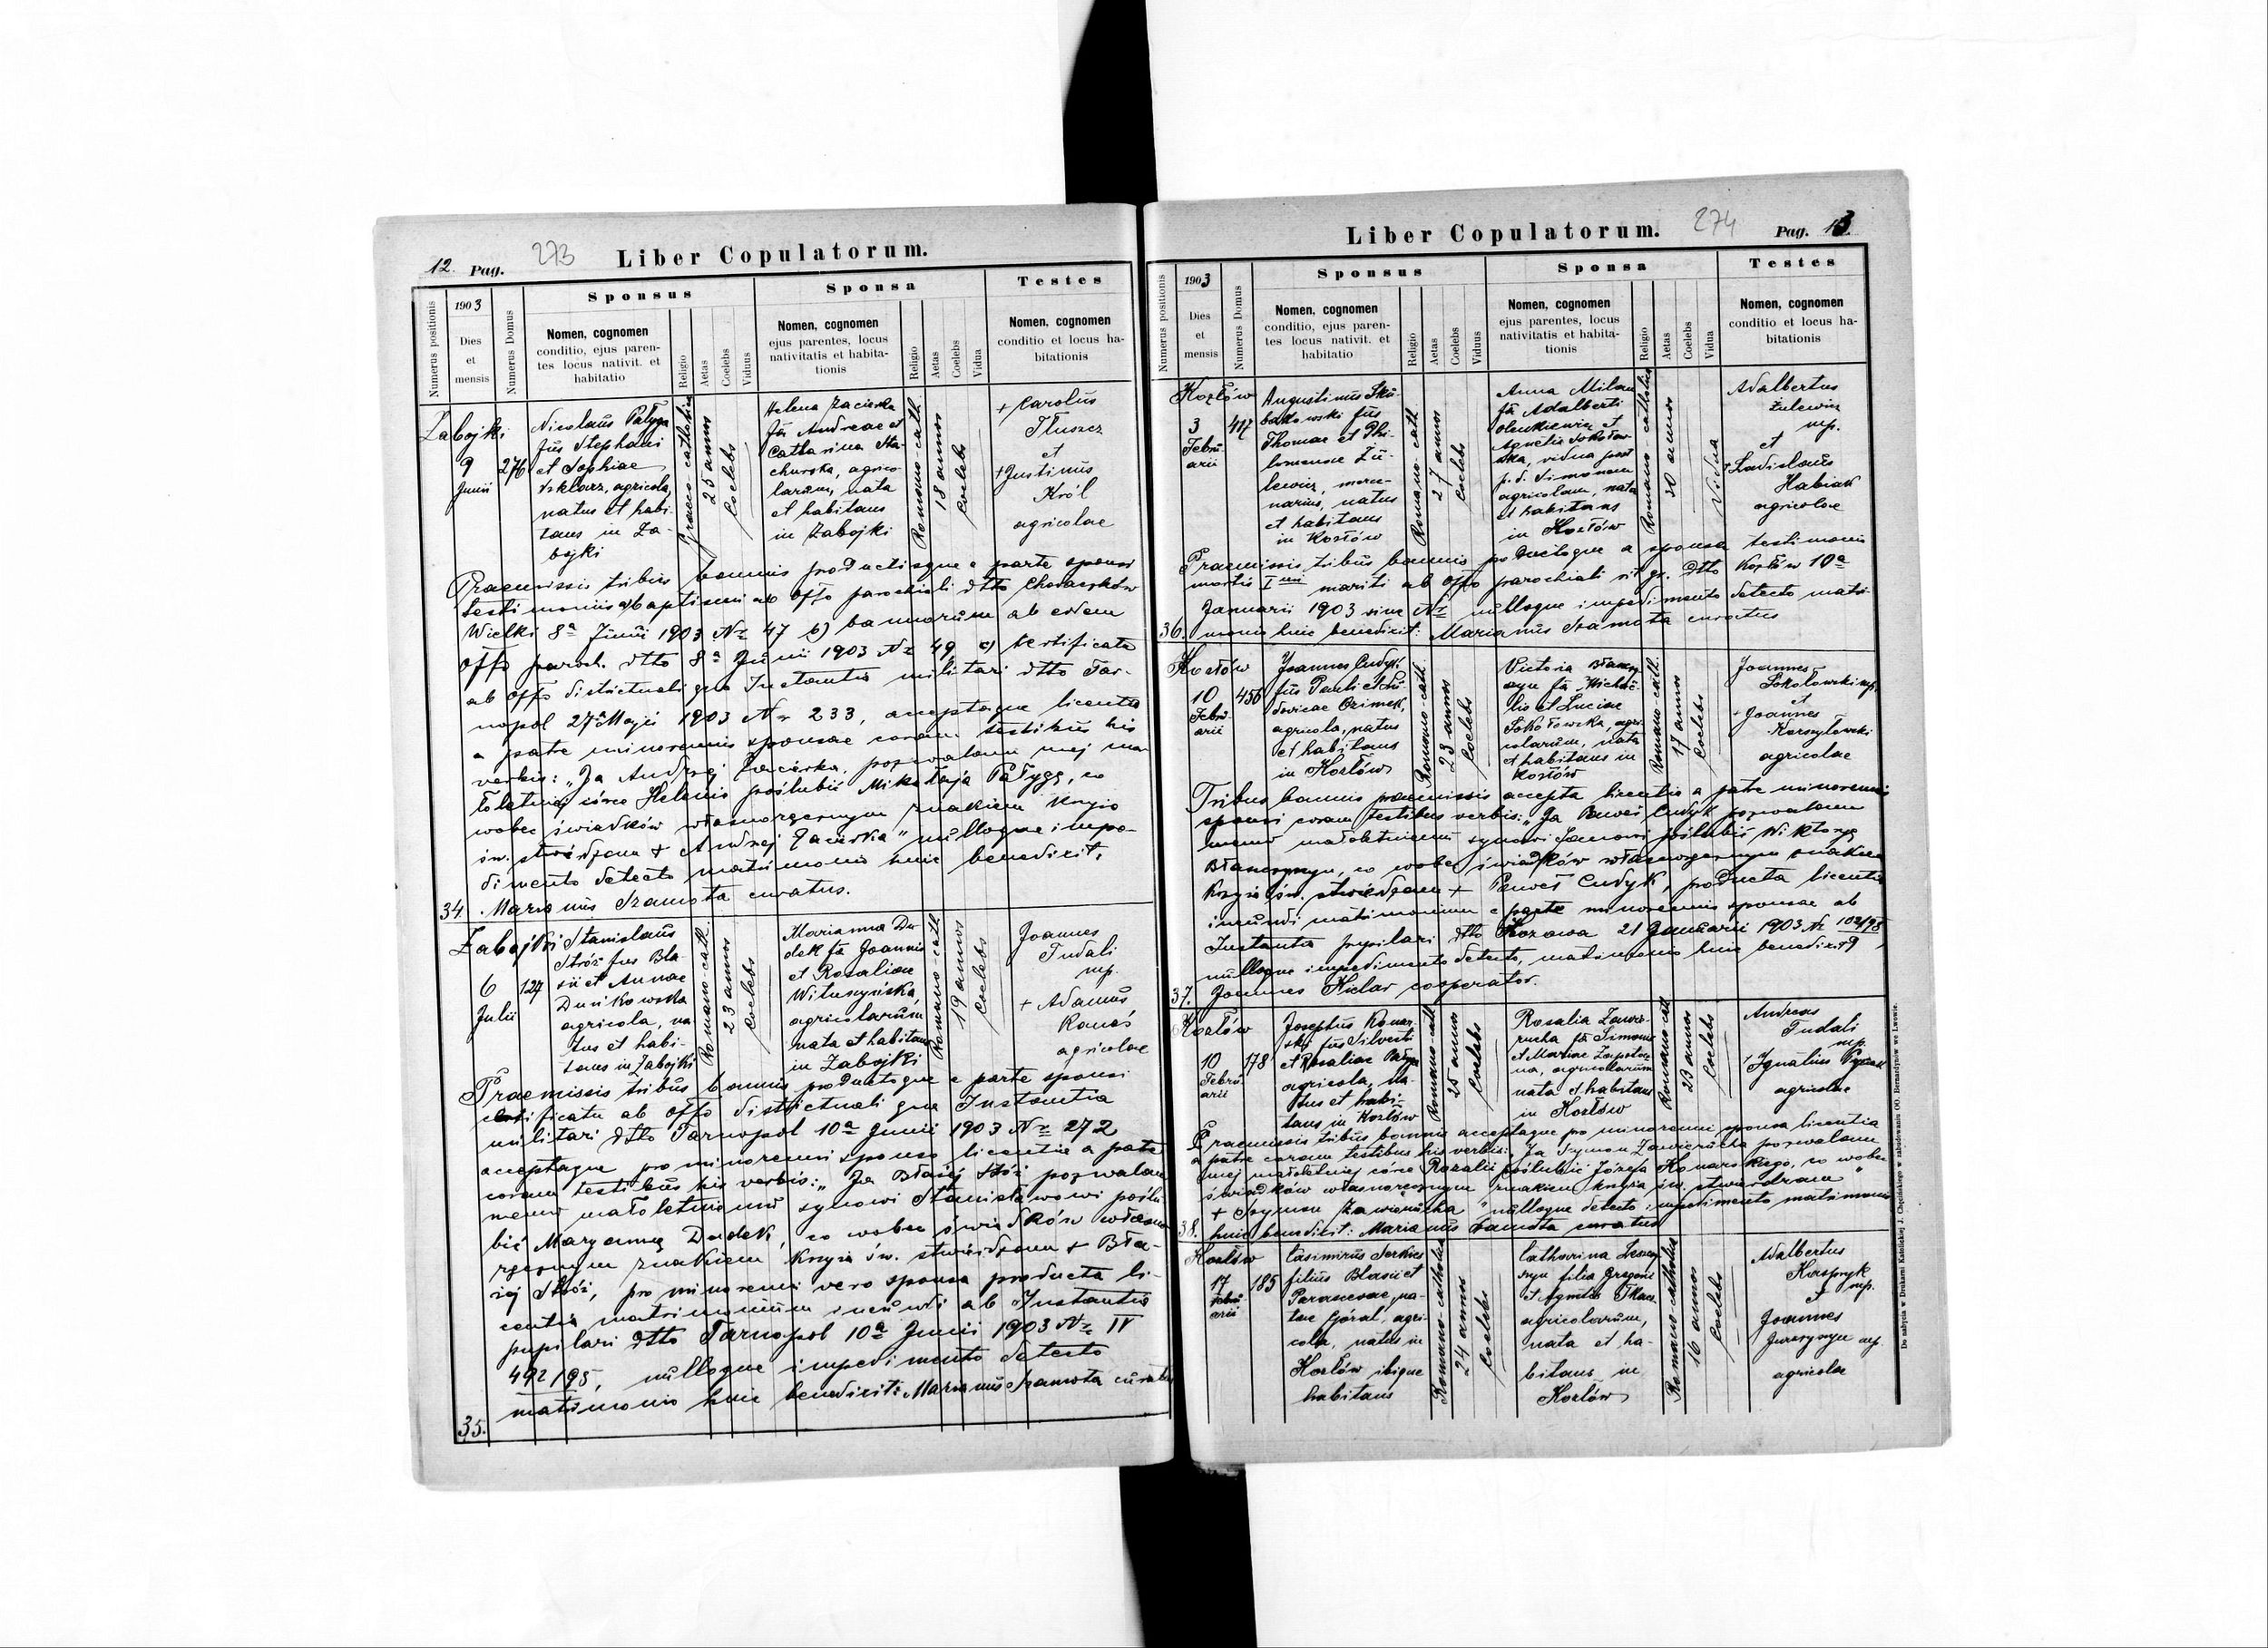 12. Pag.
273
Liber Copulatorum.
Numerus positionis
1903
Dies
et
mensis
Numerus Domus
Sponsus
Nomen, cognomen
conditio, ejus paren-
tes locus nativit. et
habitatio
Religio
Aetas
Coelebs
Viduus
Sponsa
Nomen, cognomen
ejus parentes, locus
nativitatis et habita-
tionis
Religio
Aetas
Coelebs
Vidua
Testes
Nomen, cognomen
conditio et locus ha-
bitationis
Zabojki
9
Junii
276
Nicolaus Pałyga
fius Stephani
et Sophiae
Szklarz, agricola,
natus et habi-
tans in Za-
bojki
Graeco-catholica
25 annos
Coelebs
Helena Zacierka
fia Andreae et
Catharina Sta-
churska, agrico-
larum, nata
et habitans
in Zabojki
Romano-cath.
18 annos
Coelebs
+ Carolus
Tłuszcz
et
+ Justinus
Król
agricolae
Praemissis tribus bannis productisque e parte sponsi
testimoniis a) baptismi ab offo parochiali dtto Chodaczków
Wielki 8a Junii 1903 Nr 47 b) bannorum ab eodem
offo paroch. dtto 8a Junii 1903 Nr 49 c) certificate
ab offo districtuali qua Instantia militari dtto Tar-
nopol 27a Maji 1903 Nr 233, acceptaque licentia
a patre minorennis sponsae coram testibus his
verbis: „Ja Andrzej Zacierka, pozwalam mej ma-
łoletniej córce Helenie poślubić Mikołaja Pałygę, co
wobec świadków własnoręcznym znakiem krzyża
św. stwierdzam + Andrzej Zacierka" nulloque impe-
dimento detecto matrimonio huic benedixit.
34. Marianus Szamota curatus.
Zabojki
6
Julii
127
Stanislaus
Stróż fius Bla-
sii et Annae
Dunikowska
agricola, na-
tus et habi-
tans in Zabojki
Romano-cath.
23 annos
Coelebs
Marianna Du-
dek fia Joannis
et Rosaliae
Wituszyńska,
agricolarum
nata et habitans
in Zabojki
Romano-cath
19 annos
Coelebs
Joannes
Tudali
mp.
+ Adamus
Kanaś
agricolae
Praemissis tribus bannis productoque e parte sponsi
certificatu ab offo districtuali qua Instantia
militari dtto Tarnopol 10a Junii 1903 Nr 272
acceptaque pro minorenni sponso licentia a patre
coram testibus his verbis: „Ja Błażej Stróż pozwalam
memu małoletniemu synowi Stanisławowi poślu-
bić Maryannę Dudek, co wobec świadków własno-
ręcznym znakiem krzyża św. stwierdzam + Bła-
żej Stróż, pro minorenni vero sponsa producta li-
centia matrimonium ineundi ab Instantia
pupilari dtto Tarnopol 10a Junii 1903 Nr IV
492/95, nulloque impedimento detecto
matrimonio huic benedixit: Marianus Szamota curatus
35.
Liber Copulatorum.
274
Pag. 13
Numerus positionis
1903
Dies
et
mensis
Numerus Domus
Sponsus
Nomen, cognomen
conditio, ejus paren-
tes locus nativit. et
habitatio
Religio
Aetas
Coelebs
Viduus
Sponsa
Nomen, cognomen
ejus parentes, locus
nativitatis et habita-
tionis
Religio
Aetas
Coelebs
Vidua
Testes
Nomen, cognomen
conditio et locus ha-
bitationis
Kozłów
3
Febru-
arii
417
Augustinus
fius
Thomae et Phi-
lomenae Żu-
lewicz, merce-
narius, natus
et habitans
in Kozłów
Romano-cath
27 annos
Coelebs
Anna Milan
fia Adalberti
Olenkiewicz et
Agnetis Sokołow-
ska, vidua post
p. d. Simonem
agricolam, nata
et habitans
in Kozłów
Romano catholica
30 annos
Vidua
Adalbertus
Żulewicz
mp.
et
+ Ladislaus
Habiak
agricolae
Praemissis tribus bannis productoque a sponsa testimonio
mortis Imi mariti ab offo parochiali rit. gr. dtto Kozłów 10a
Januarii 1903 sine Nr nulloque impedimento detecto matri-
36. monio huic benedixit: Marianus Szamota curatus
Kozłów
10
Febru-
arii
456
Joannes Cudyk
fius Pauli et Lu-
dovicae Ozimek,
agricola, natus
et habitans
in Kozłów
Romano-cath
23 annos
Coelebs
Victoria Błaszczy-
szyn fia Michae-
lis et Luciae
Sokołowska, agri-
colarum, nata
et habitans in
Kozłów
Romano-cath.
17 annos
Coelebs
Joannes
Sokołowski mp.
et
+ Joannes
agricolae
Tribus bannis praemissis accepta licentia a patre minorennis
sponsi coram testibus verbis: „Ja Paweł Cudyk pozwalam
memu małoletniemu synowi Janowi poślubić Wiktoryę
Błaszczyszyn, co wobec świadków własnoręcznym znakiem
krzyża św. stwierdzam + Paweł Cudyk, producta licentia
ineundi matrimonium e parte minorennis sponsae ab
Instantia pupilari dtto Kozowa 21 Januarii 1903 Nr
nulloque impedimento detecto, matrimonio huic benedixit
37. Joannes Kielar cooperator.
Kozłów
10
Febru-
arii
178
Josephus Konar-
ski fius Silvestri
et Rosaliae Pałyga
agricola, na-
tus et habi-
tans in Kozłów
Romano-cath
25 annos
Coelebs
Rosalia Zawie-
rucha fia Simonis
et Mariae
agricolarum
nata et habitans
in Kozłów
Romano cath
23 annos
Coelebs
Andreas
Tudali
mp.
+ Ignatius
agricolae
Praemissis tribus bannis acceptaque pro minorenni sponsa licentia
a patre coram testibus his verbis: Ja Szymon Zawierucha pozwalam
mej małoletniej córce Rozalii poślubić Józefa Konarskiego, co wobec
świadków własnoręcznym znakiem krzyża św. stwierdzam
+ Szymon Zawierucha" nulloque detecto impedimento matrimonio
38. huic benedixit: Marianus Szamota curatus
Kozłów
17
Febru-
arii
185
Casimirus Serkies
filius Blasii et
Parascevae, na-
tae Góral, agri-
cola, natus in
Kozłów ibique
habitans
Romano-catholica
24 annos
Coelebs
Catharina
filia Gregorii
et Agnetis Tkacz
agricolarum,
nata et ha-
bitans in
Kozłów
Romano-catholica
16 annos
Coelebs
Adalbertus
Kasprzyk
mp.
et
Joannes
Jurczyszyn mp.
agricolae
Do nabycia w Drukarni Katolickiej J. Chęcińskiego w zabudowaniu OO. Bernardynów we Lwowie.